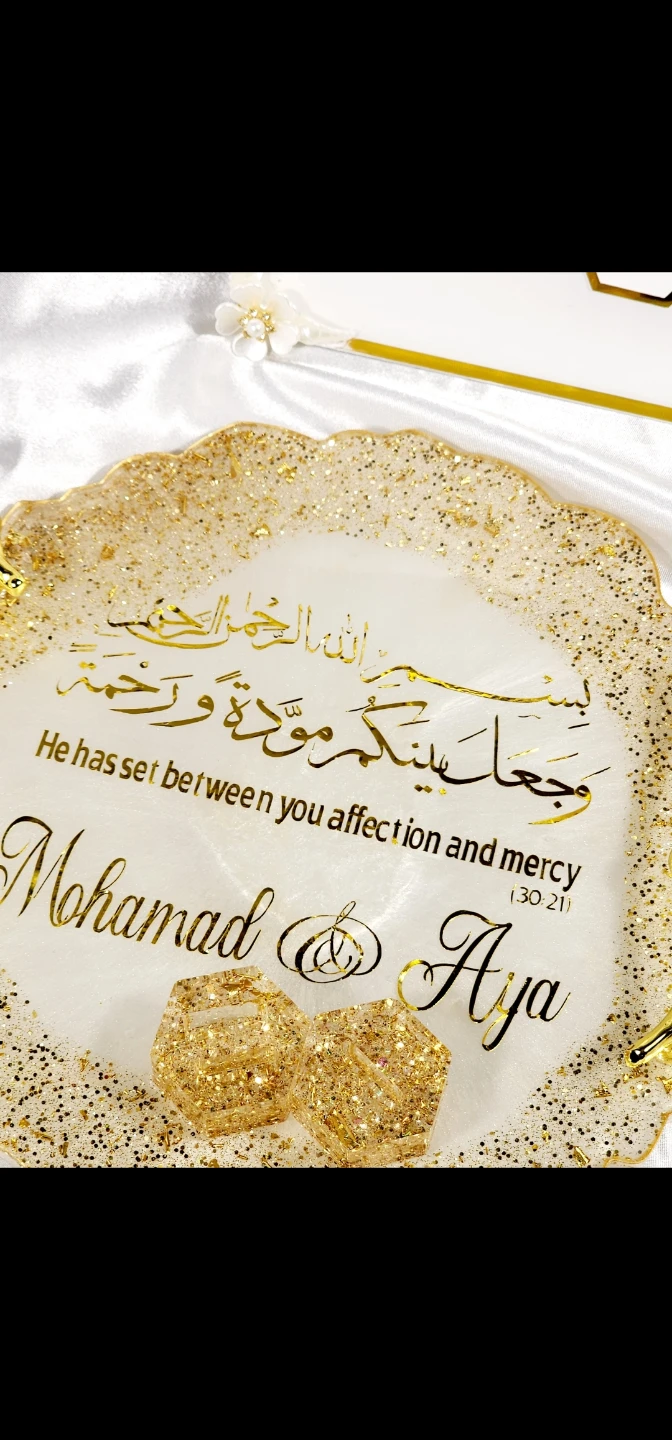 بسم الله الرحمن الرحيم
وَجَعَلَ بَينَكُم مَوَّدَةً وَرَحْمَةً
He has set between you affection and mercy
(30:21)
Mohamad & Aya